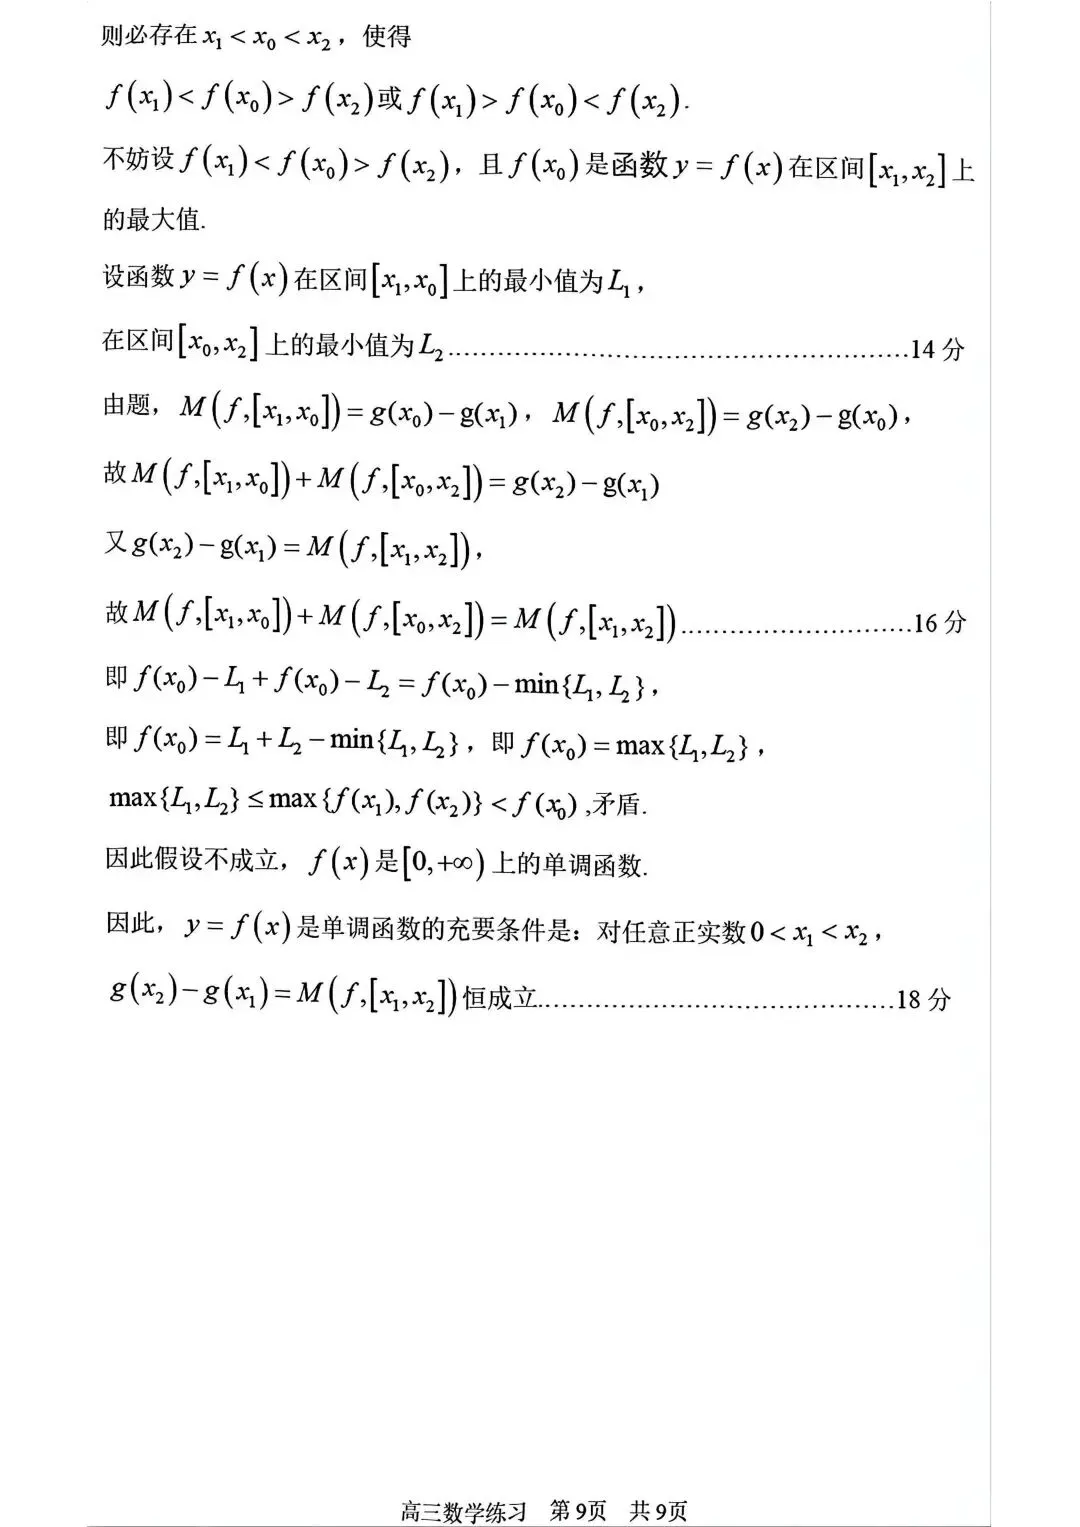 则必存在 x₁ < x₀ < x₂，使得
f(x₁) < f(x₀) > f(x₂) 或 f(x₁) > f(x₀) < f(x₂).
不妨设 f(x₁) < f(x₀) > f(x₂)，且 f(x₀) 是函数 y = f(x) 在区间 [x₁,x₂] 上
的最大值.
设函数 y = f(x) 在区间 [x₁,x₀] 上的最小值为 L₁，
在区间 [x₀,x₂] 上的最小值为 L₂……………………………………………14 分
由题，M(f,[x₁,x₀]) = g(x₀) – g(x₁)，M(f,[x₀,x₂]) = g(x₂) – g(x₀)，
故 M(f,[x₁,x₀]) + M(f,[x₀,x₂]) = g(x₂) – g(x₁)
又 g(x₂) – g(x₁) = M(f,[x₁,x₂])，
故 M(f,[x₁,x₀]) + M(f,[x₀,x₂]) = M(f,[x₁,x₂])………………………16 分
即 f(x₀) – L₁ + f(x₀) – L₂ = f(x₀) – min{L₁, L₂}，
即 f(x₀) = L₁ + L₂ – min{L₁, L₂}，即 f(x₀) = max{L₁,L₂}，
max{L₁,L₂} ≤ max{f(x₁),f(x₂)} < f(x₀) ,矛盾.
因此假设不成立，f(x) 是 [0,+∞) 上的单调函数.
因此，y = f(x) 是单调函数的充要条件是：对任意正实数 0 < x₁ < x₂，
g(x₂) – g(x₁) = M(f,[x₁,x₂]) 恒成立…………………………………18 分
高三数学练习 第9页 共9页